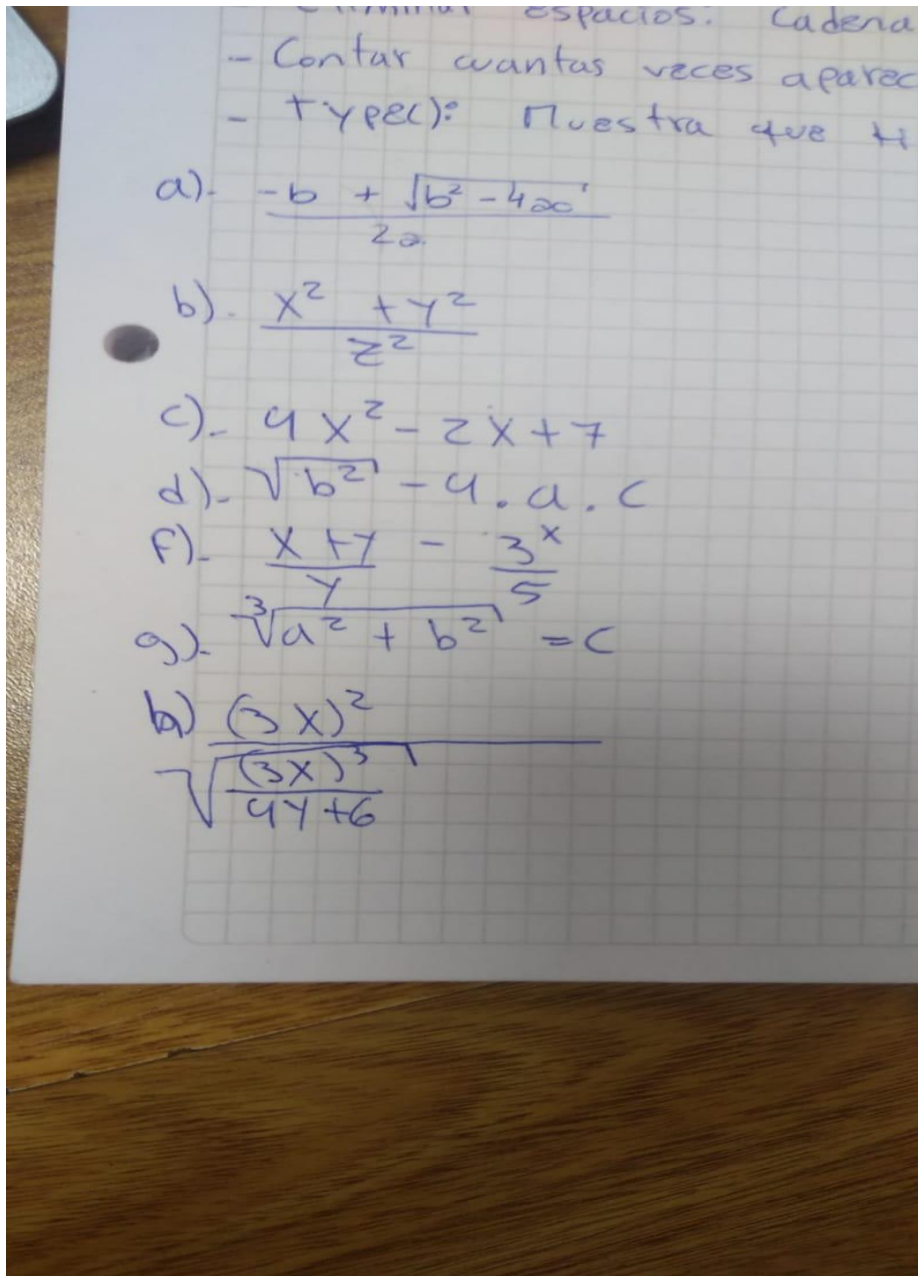 espacios: Cadena
- Contar cuantas veces aparec
- Type(): Muestra que ti
a).- -b + √b² - 4ac
2a.
b). x² + y²
z²
c).- 4x² - 2x + 7
d).- √b² - 4 . a . c
f).- x + y - 3^x
y 5
g).- ³√a² + b² = c
h) (3x)²
√(3x)³
4y + 6